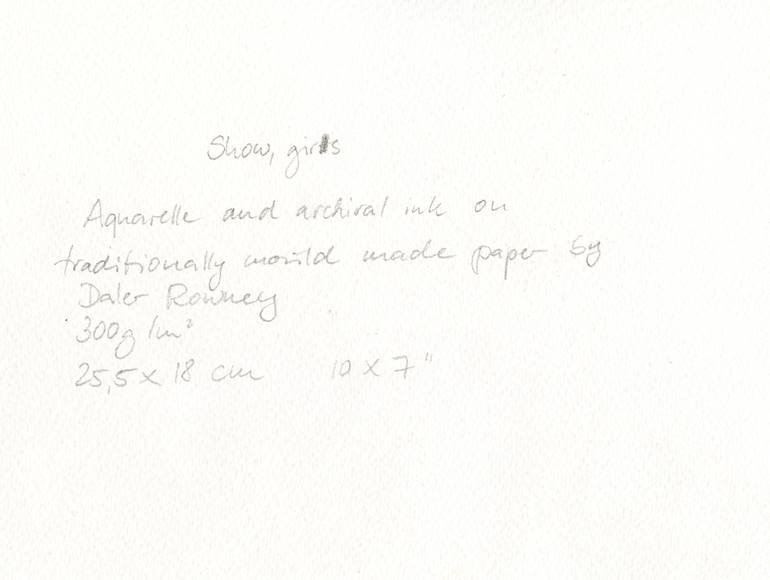 Show, girls
Aquarelle and archival ink on
traditionally mould made paper by
Daler Rowney
300g/m²
25,5 x 18 cm 10 x 7"